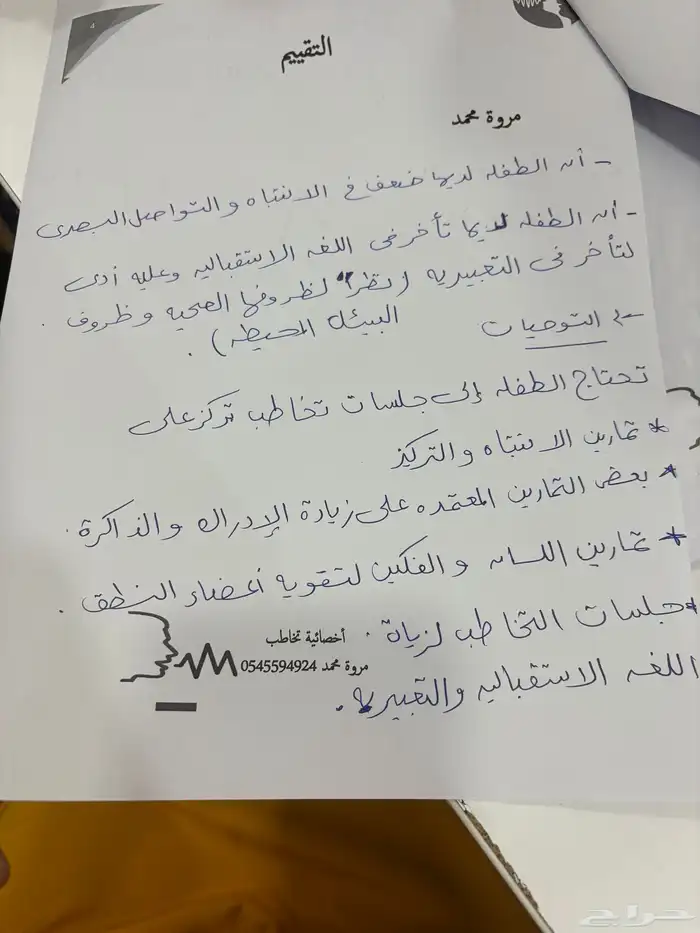 4
التقييم
مروة محمد
- أن الطفله لديها ضعف في الانتباه والتواصل البصرى
- أن الطفله لديها تأخر فى اللغه الاستقباليه وعليه أدى
لتأخر فى التعبيريه (نظراً لظروفها الصحيه وظروف
البيئه المحيطه).
التوصيات
تحتاج الطفله إلى جلسات تخاطب تركز على
* تمارين الانتباه والتركيز
* بعض التمارين المعتمده على زيادة الإدراك والذاكرة.
* تمارين اللسان والفكين لتقويه أعضاء النطق.
* جلسات التخاطب لزيادة.
اللغه الاستقباليه والتعبيريه.
أخصائية تخاطب
مروة محمد 0545594924
حراج